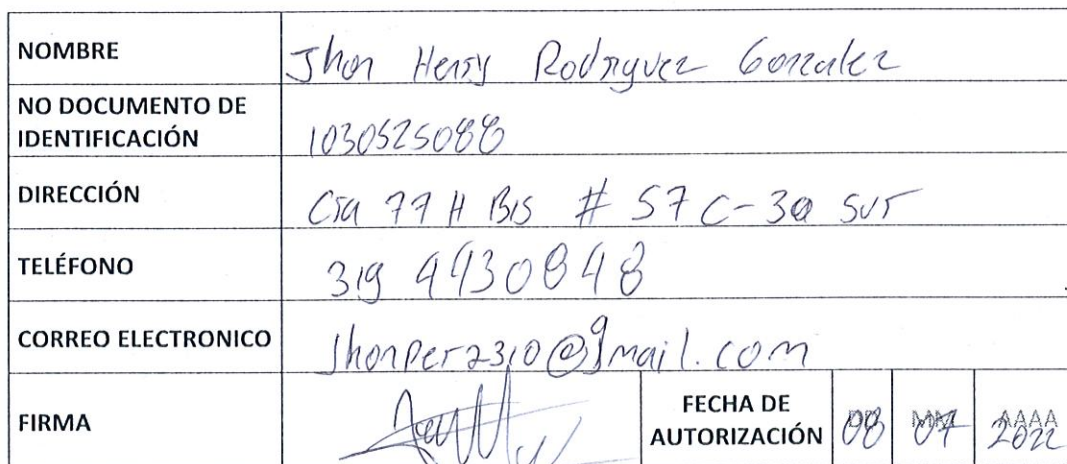 NOMBRE Jhon Henry Rodriguez Gonzalez
NO DOCUMENTO DE
IDENTIFICACIÓN 1030525088
DIRECCIÓN Cra 77 H Bis # 57 C-30 Sur
TELÉFONO 319 4430848
CORREO ELECTRONICO Jhonper2310@gmail.com
FIRMA
FECHA DE
AUTORIZACIÓN 08 07 2022